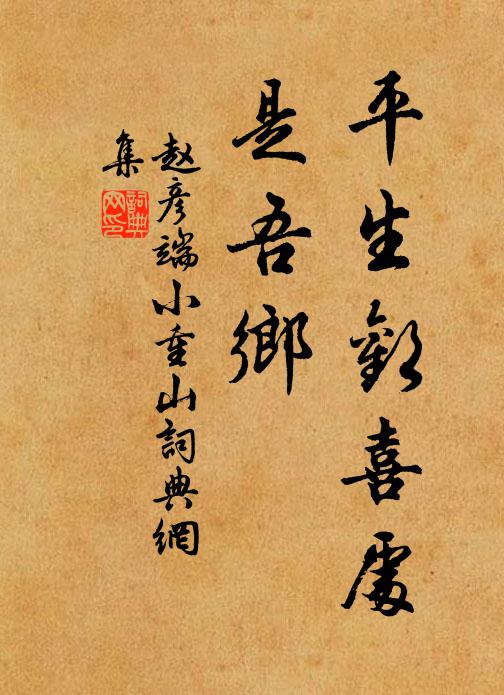 平生歡喜處
是吾鄉
赵彥端小重山詞典網
集
詞典网印